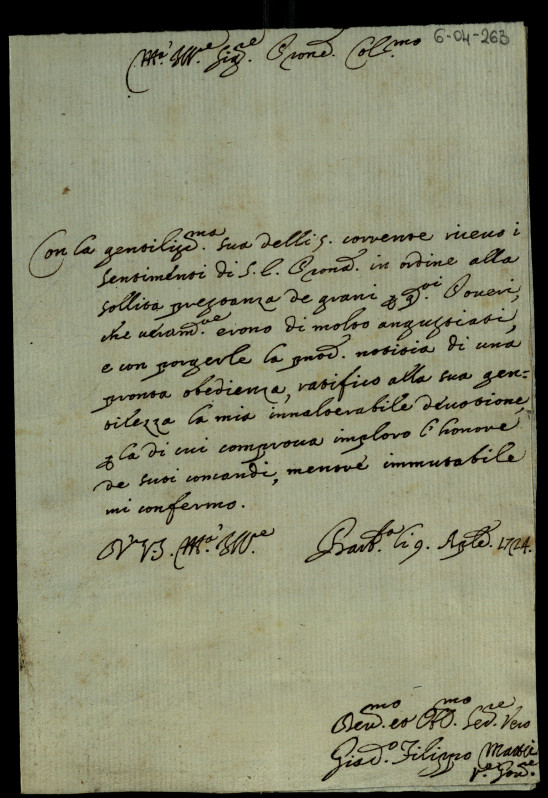 6-04-263
Mo. Ill.re Sig.re Pron.e Col.mo
Con la gentiliss.ma sua delli 5. corrente riceuo i
sentimenti di S. E. Pron.e in ordine alla
sollita prestanza de grani p q.sti Poueri,
che veram.te erono di molto angustiati,
e con porgerle la pnte. notitia di una
pronta obedienza, ratifico alla sua gen=
tilezza la mia innalterabile deuotione,
p la di cui comproua imploro l'honore
de suoi comandi, mentre immutabile
mi confermo.
D V.S. Mo. Ill.re
li 9. Aple. 1724.
Deu.mo et Obl.mo Ser.re Vero
Filippo